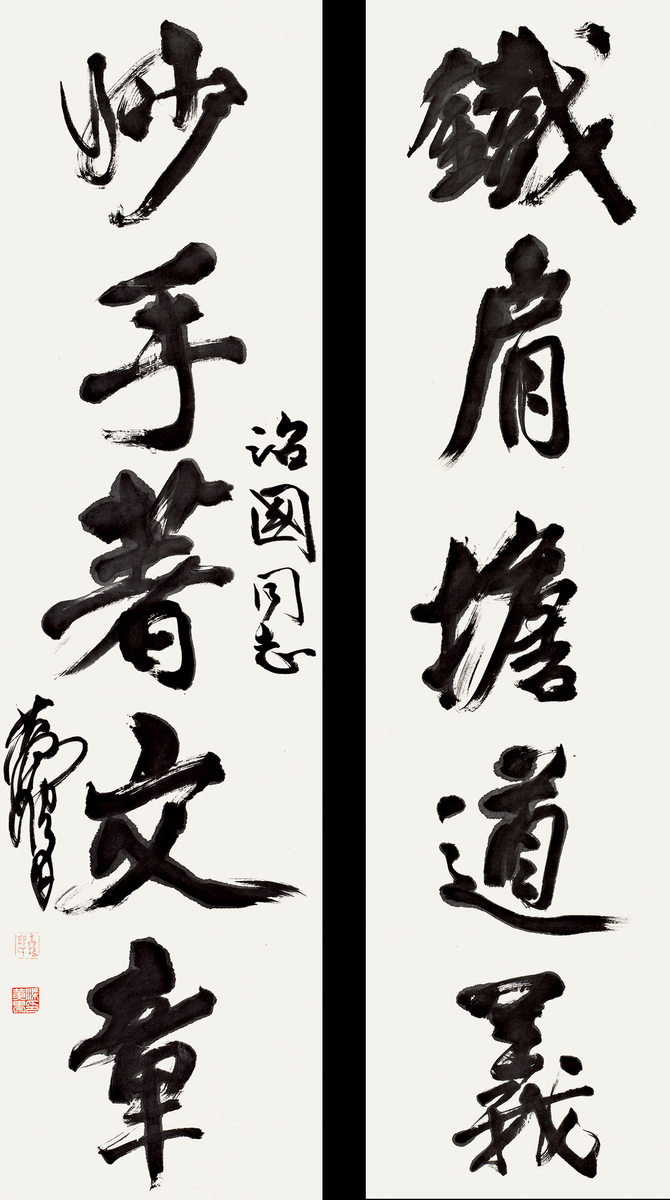 鐵肩擔道義
治國同志
妙手著文章